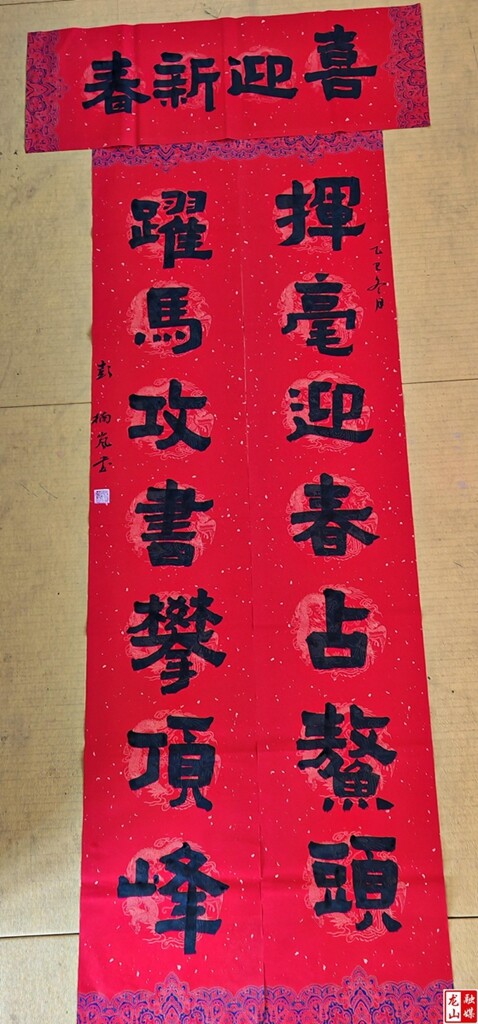 喜迎新春
揮毫迎春占鰲頭
乙巳冬月
躍馬攻書攀頂峰
彭楠嵐書
龙山融媒